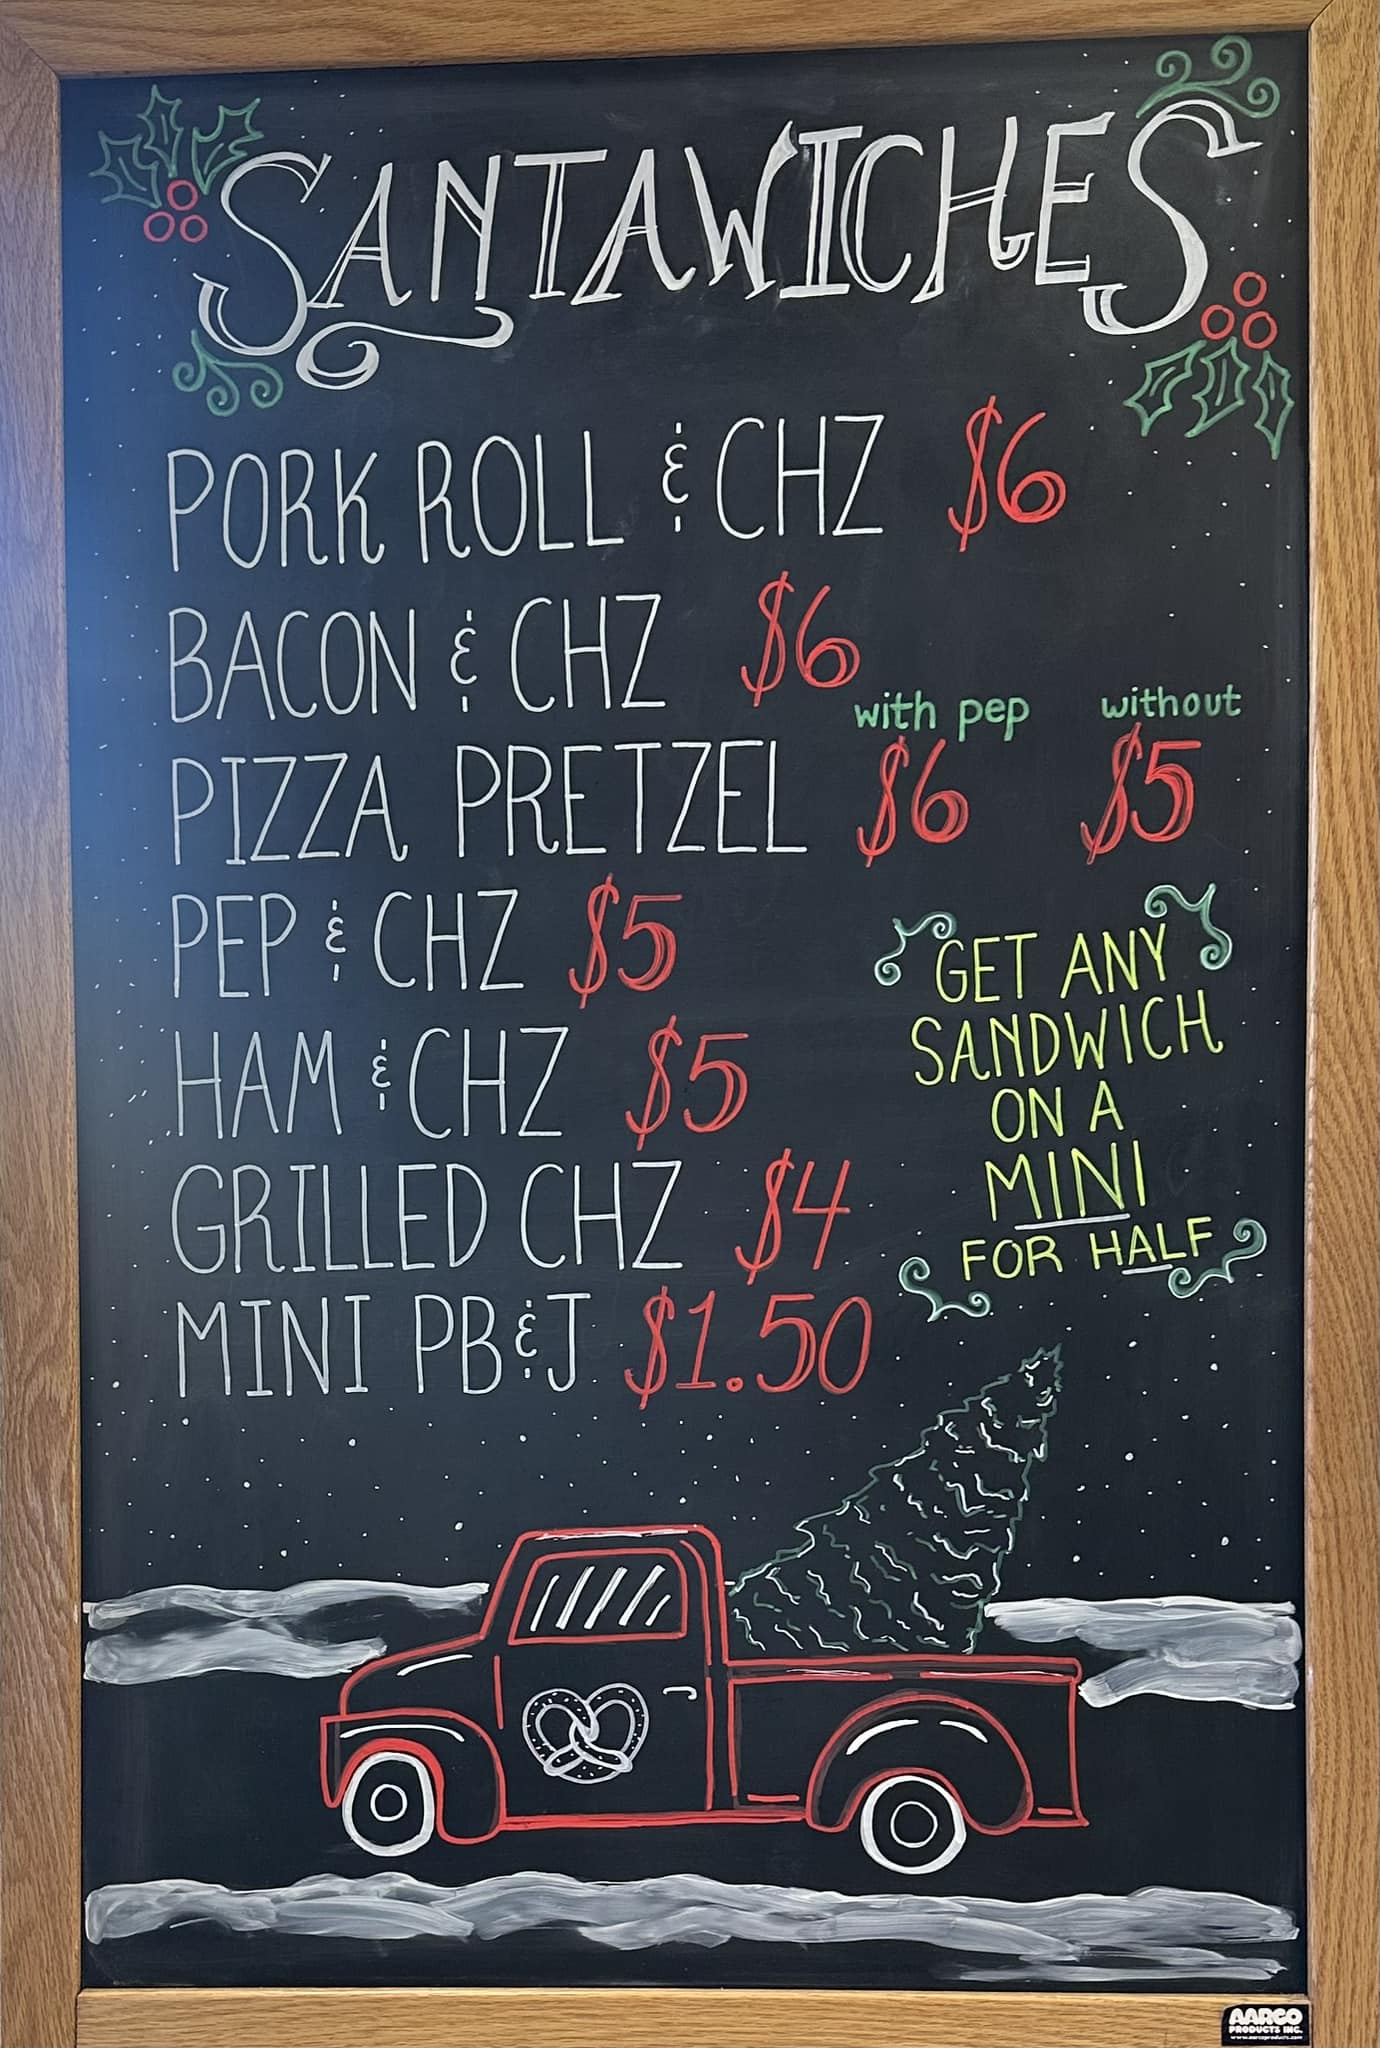 SANTAWICHES
PORK ROLL & CHZ $6
BACON & CHZ $6
with pep without
PIZZA PRETZEL $6 $5
PEP & CHZ $5
HAM & CHZ $5
GRILLED CHZ $4
MINI PB&J $1.50
GET ANY
SANDWICH
ON A
MINI
FOR HALF
AARCO
PRODUCTS INC.
www.aarcoproducts.com